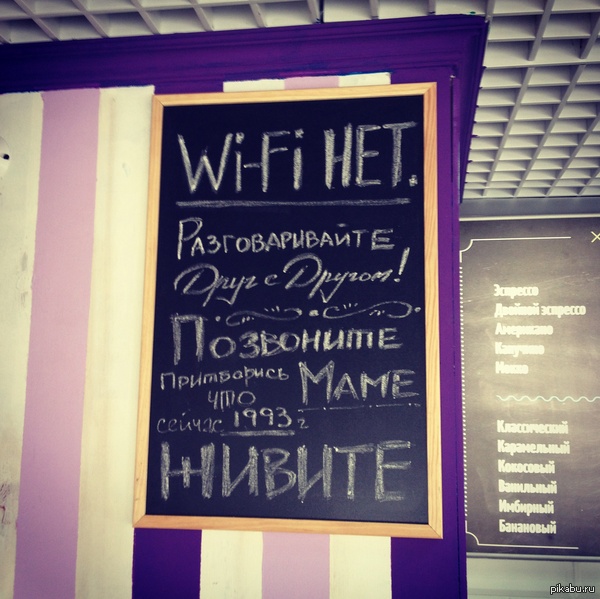 Wi-Fi НЕТ.
РАЗГОВАРИВАЙТЕ
Друг с Другом!
ПОЗВОНИТЕ
ПРИТВОРИСЬ МАМЕ
что
сейчас 1993 г
ЖИВИТЕ
Эспрессо
Двойной эспрессо
Американо
Капучино
Мокко
Классический
Карамельный
Кокосовый
Ванильный
Имбирный
Банановый
pikabu.ru